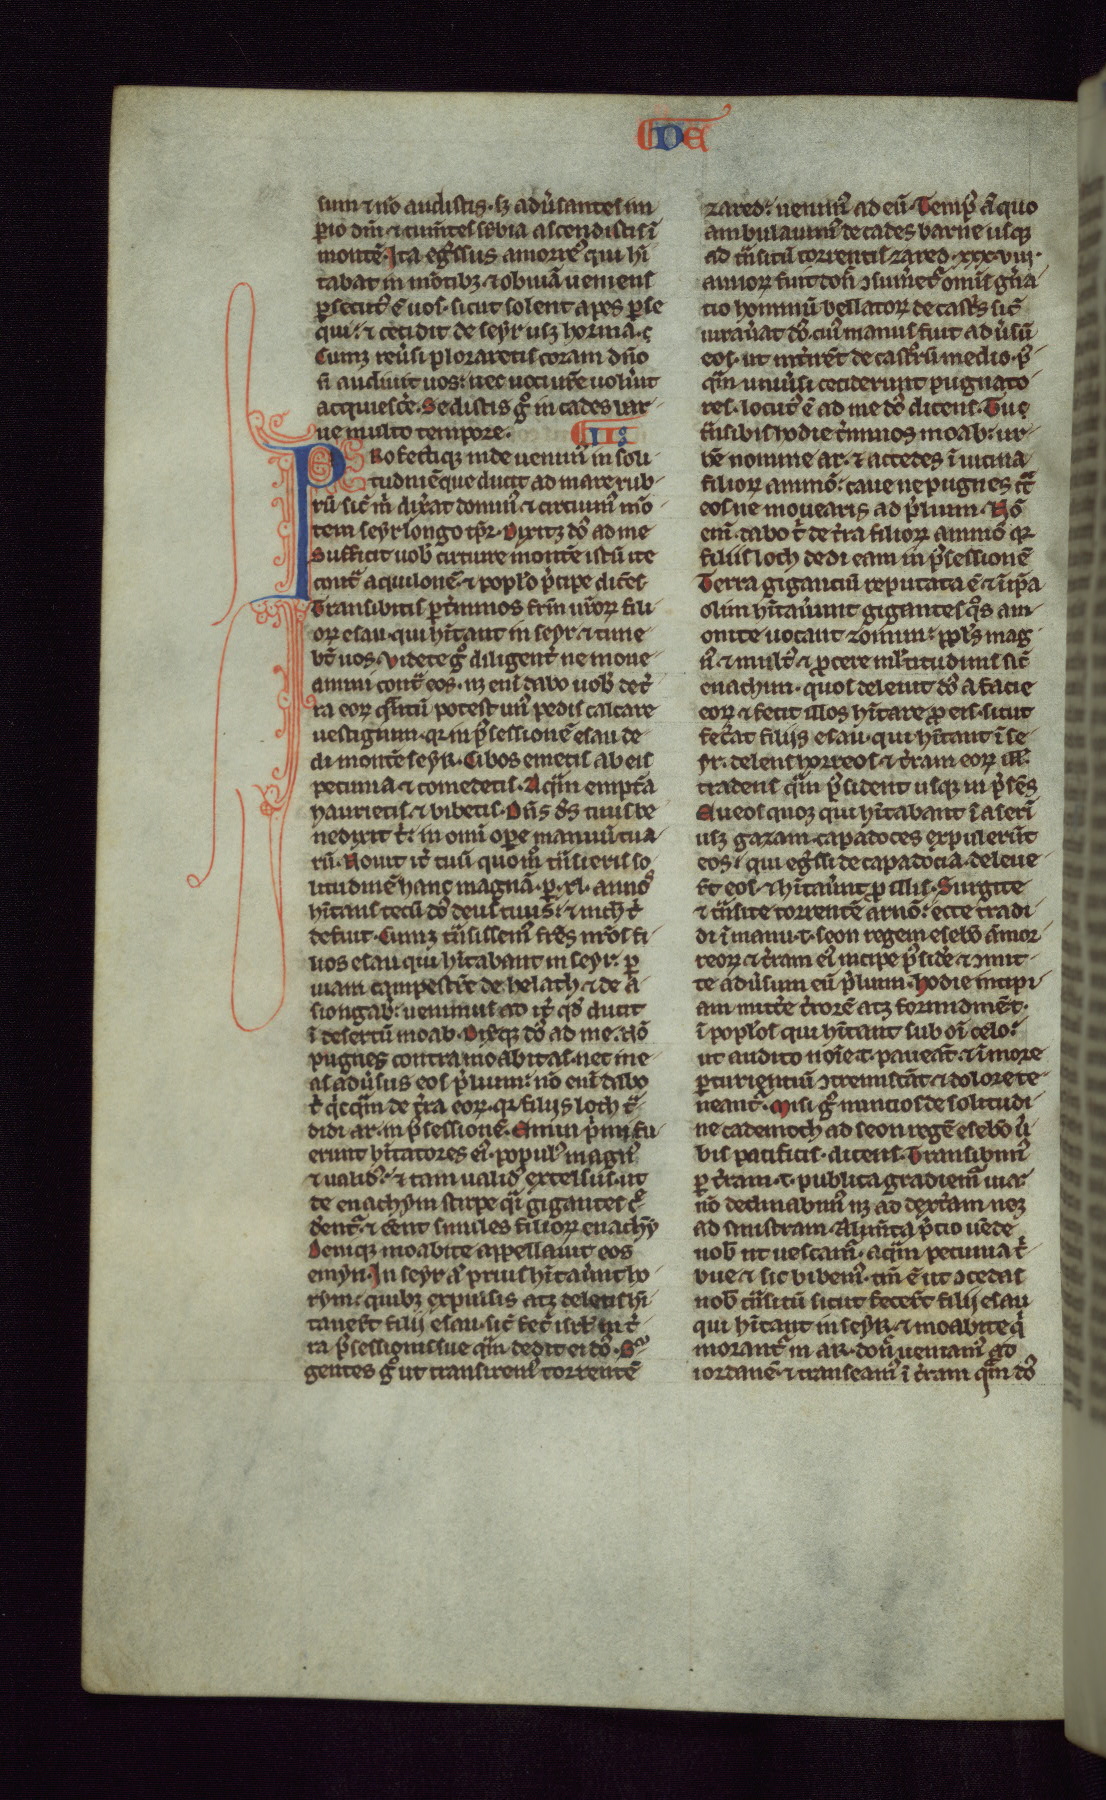 DE
sum ⁊ nō audistis· sꝫ adũsantes im
perio dñi ⁊ tumētes sũbia ascendistis ī
montē· Ita egr̃ssus amorreꝰ qui hĩ
tabat in mōtibꝫ ⁊ obuiā ueniens
ꝑsecutꝰ ē uos· sicut solent apes ꝑse
qui· ⁊ cecidit de seyr usꝫ horma·
Cumꝫ reũsi ploraretis coram dño
ñ audiuit uos· nec uoci ur̃e uoluit
acquiescr̃e· Sedistis gͦ in cades bar
ne multo tempore· II
PRofectiqꝫ inde uenimꝰ in soli
tudinē que ducit ad mare rub
rū· sic̃ m̃ dixat dominꝰ ⁊ circuimꝰ mō
tem seyr longo tp̃r· Dixitꝫ dñs ad me
Sufficit uob̃ circuire montē istū ite
cont̃ aquilonē· ⁊ popl̃o p̃cipe dicēs·
Transibitis ꝑ t̃minos frm̃ ur̃oꝝ fili
oꝝ esau· qui hĩtant in seyr ⁊ time
bt̃ uos· Videte gͦ diligent̃ ne moue
amini cont̃ eos· nꝫ eni dabo uob̃ de t̃
ra eoꝝ qñtū potest unꝰ pedis calcare
uestigium· qr in p̃sessionē esau de
di montē seyr· Cibos emetis ab eis
pecunia ⁊ comedetis· Aq̃m emptā
haurietis ⁊ bibetis· Dñs dꝰs tuus be
nedixit t̃· in omĩ oꝑe manuū tua
rū· Nouit it̃ tuū quom̃ tñsieris so
litudinē hanc magnā· ꝑ· xl· annos
hĩtans tecū dñs deus tuus· ⁊ nich̃ t̃
defuit· Cumꝫ tñsissemꝰ fr̃es nr̃os fi
lios esau qui hĩtabant in seyr· ꝑ
uiam campestr̃e de helath ⁊ de a
siongab· uenimus ad it̃ qd̃ ducit
ī desertū moab· Dixqꝫ dñs ad me· Nō
pugnes contra moabitas· nec ine
as adũsus eos p̃lium· nō eni dabo
t̃ q̃cq̃m de t̃ra eoꝝ· qr filijs loth t̃
didi ar· in p̃sessionē· Emim p̃mi fu
erunt hĩtatores eiꝰ· populꝰ magnꝰ
⁊ ualidꝰ· ⁊ tam ualidꝰ excelsus· ut
de enachym stirpe q̃i gigantes c̃
dent̃· ⁊ eent similes filioꝝ enachym
Deniqꝫ moabite appellant eos
emyn· In seyr aͫ prius hĩtaũnt ho
rym· quibꝫ expulsis atꝫ deletis hĩ
tauer̃t filij esau· sic̃ fec̃ isrl̃ in t̃
ra p̃sessionis sue q̃m dedit ei dñs· Sur
gentes gͦ ut transiremꝰ torrentē
zared· uenimꝰ ad eū· Tempꝰ aͫ quo
ambulauimꝰ de cades barne usqꝫ
ad tñsitū torrentis zared· xxx·viij·
annoꝝ fuit don̄ ꝯsumeret̃ omĩs gña
cio hominū bellatoꝝ de castr̃s sic̃
iurauat dñs· cuiꝰ manus fuit ad ũsū
eos· ut int̃irēt de castroꝝ medio· p̃
q̃m uniũsi ceciderunt pugnato
res· locutꝰ ē ad me dñs dicens· Tu
tñsibis hodie t̃minos moab· ur
bē nomine ar· ⁊ accedes ī uicina
filioꝝ ammō· caue ne pugnes cͭ
eos ne mouearis ad p̃lium· Nō
enī dabo t̃ de t̃ra filioꝝ ammō qr
filiis loth dedi eam in p̃sessionē
Terra gigantiū reputata ē· ⁊ ī ip̃a
olim hĩtaũunt gigantes qͦs am
onite uocant zomim· ppl̃s mag
nꝰ ⁊ multꝰ ⁊ ꝓcere ml̃titudinis sic̃
enachim· quos deleuit dñs a facie
eoꝝ ⁊ fecit illos hĩtare ꝓ eis· sicut
fec̃at filijs esau· qui hĩtant ī se
yr· delens horreos ⁊ t̃ram eoꝝ ill̃
tradens q̃m p̃sident usqꝫ in p̃sēs
Eueos quoꝫ qui hĩtabant ī aserī
usꝫ gazam· capadoces expulerūt
eos· qui egr̃ssi de capadocia· deleue
rt̃ eos· ⁊ hĩtaũnt ꝓ illis· Surgite
⁊ tñsite torrentē arnō· ecce tradi
di ī manu· t· seon regem esebō amor
reoꝝ ⁊ t̃ram eiꝰ incipe p̃sidr̃e ⁊ ꝯmit
te adũsum eū p̃lium· Hodie incipi
am mitt̃e t̃rorē atꝫ formidinē· t·
ī popl̃os qui hĩtant sub oĩ celo·
ut audito noĩe· t· paueāt· ⁊ ī more
ꝑturientiū ꝯtremiscāt ⁊ dolore te
neant̃· Misi gͦ nuncios de solitudi
ne cademoth ad seon regē esebō ũ
bis pacificis· dicens· Transibimꝰ
ꝑ t̃ram· t· publica gradiem̃ uia·
nō declinabimꝰ nꝫ ad dext̃am neꝫ
ad sinistram· Alimēta p̃cio uēde
nob̃ ut uescam̃· aq̃m pecunia t̃
bue ⁊ sic bibemꝰ· tm̃ ē ut ꝯcedas
nob̃ tñsitū sicut fecer̃t filij esau
qui hĩtant in seyr· ⁊ moabite q̃
morant̃ in ar· don̄ ueniamꝰ ad
iordanē· ⁊ transeamꝰ ī t̃ram q̃m dñs